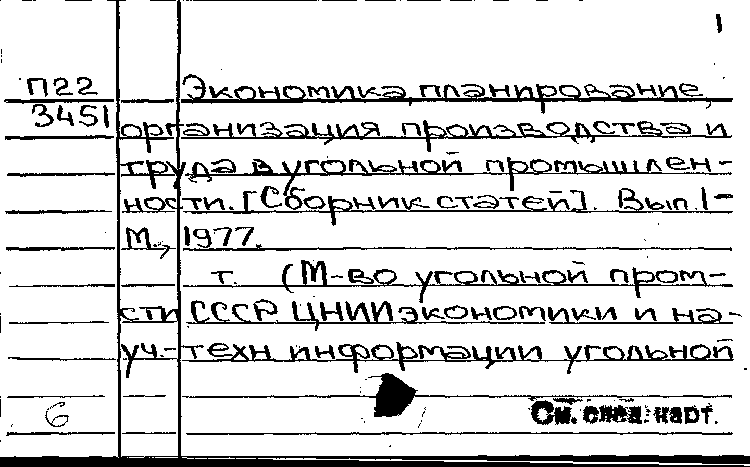 1
П22 Экономика, планирование,
3451 организация производства и
труда в угольной промышлен-
ности. [Сборник статей]. Вып. 1-
М., 1977.
т. (М-во угольной пром-
сти СССР ЦНИИ экономики и на-
уч.-техн информации угольной
6 См. след. карт.